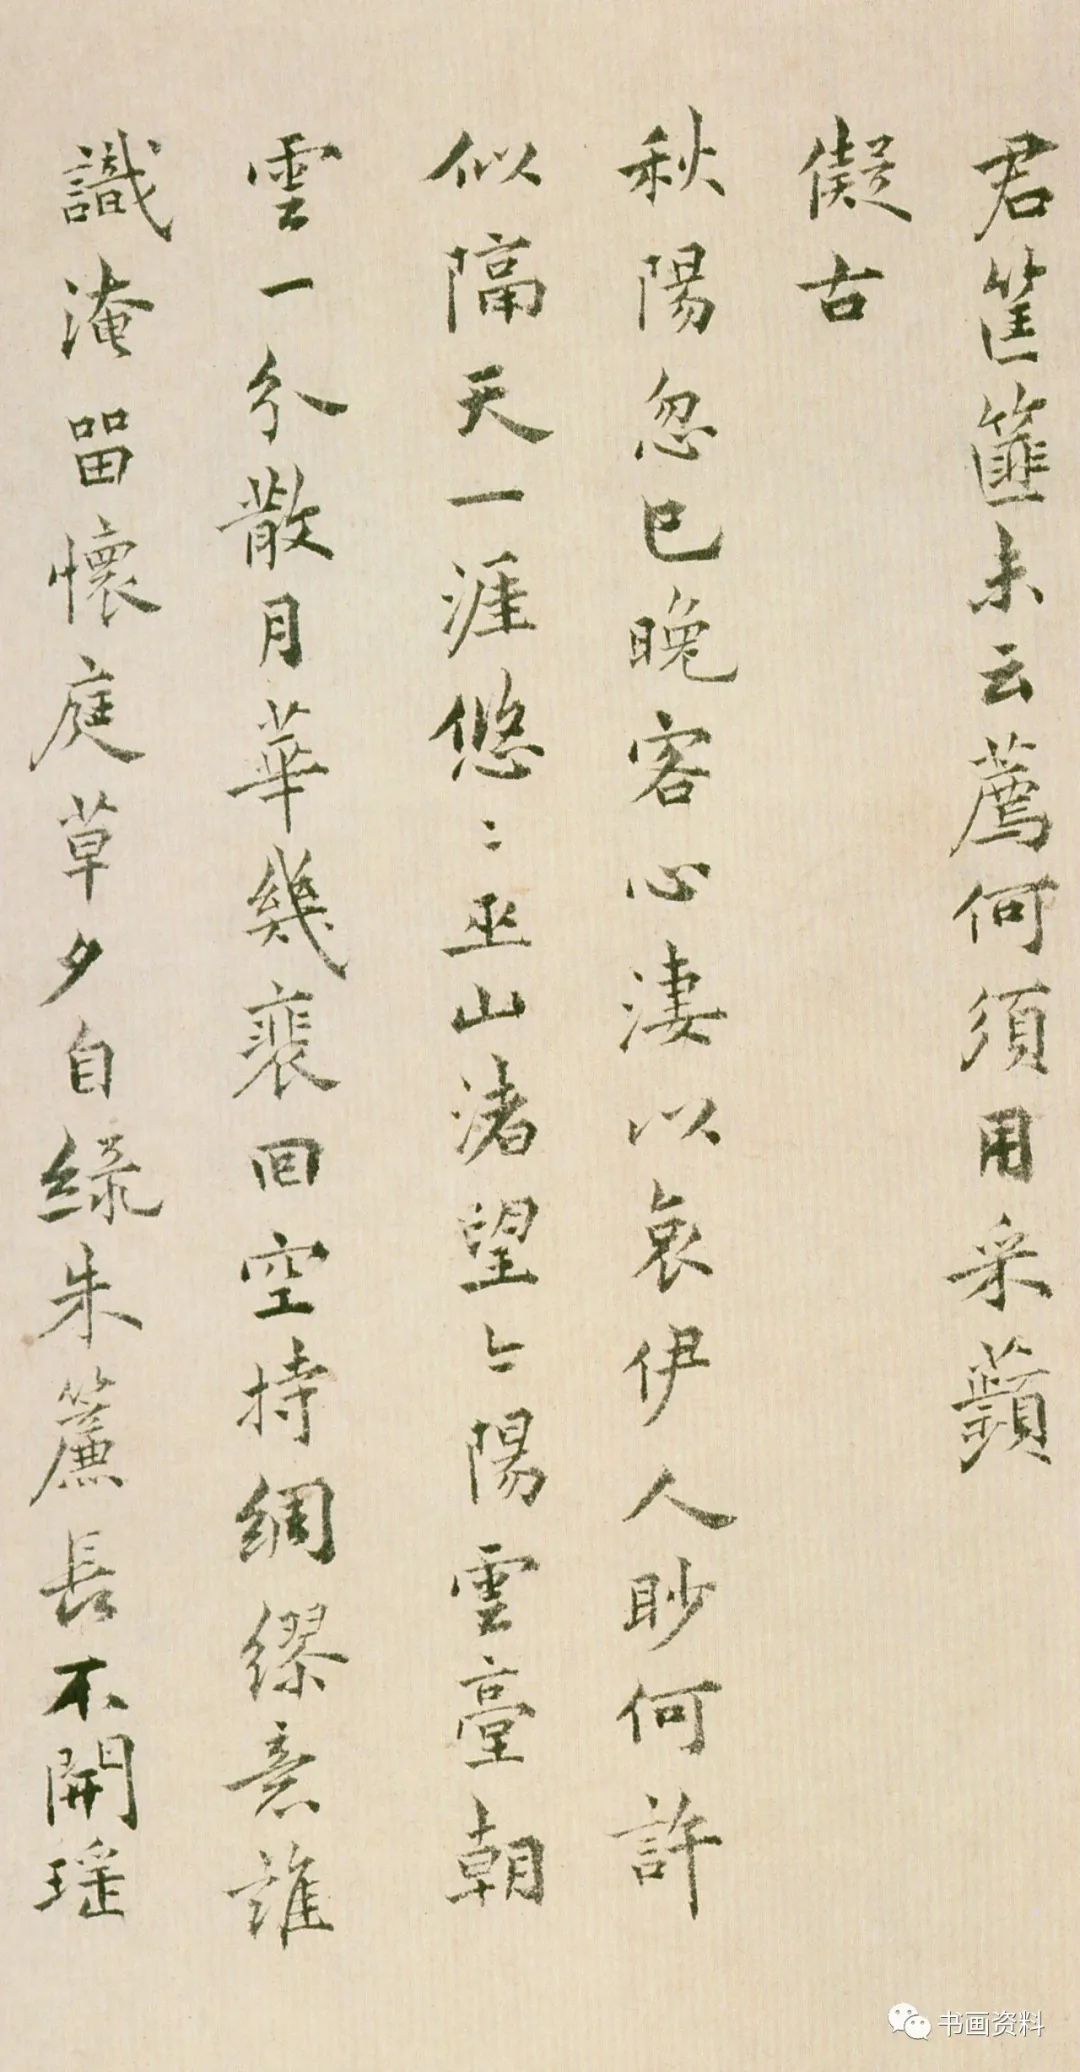 君筐篚未云薦何須用采蘋
儗古
秋陽忽已晚客心淒以哀伊人眇何許
似隔天一涯悠〻巫山渚望〻陽雲臺朝
雲一分散月華幾裴回空持綢繆意誰
識淹留懷庭草夕自綠朱簾長不開瑤
书画资料